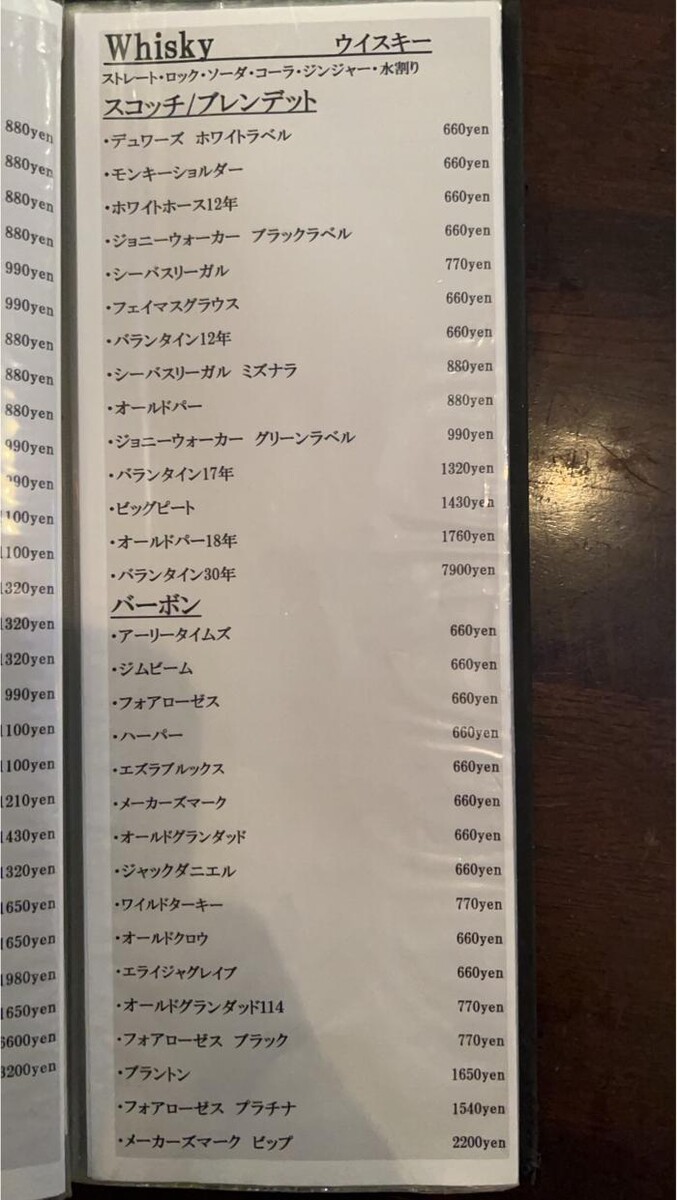 Whisky ウイスキー
ストレート・ロック・ソーダ・コーラ・ジンジャー・水割り
スコッチ/ブレンデット
・デュワーズ ホワイトラベル 660yen
・モンキーショルダー 660yen
・ホワイトホース12年 660yen
・ジョニーウォーカー ブラックラベル 660yen
・シーバスリーガル 770yen
・フェイマスグラウス 660yen
・バランタイン12年 660yen
・シーバスリーガル ミズナラ 880yen
・オールドパー 880yen
・ジョニーウォーカー グリーンラベル 990yen
・バランタイン17年 1320yen
・ビッグピート 1430yen
・オールドパー18年 1760yen
・バランタイン30年 7900yen
バーボン
・アーリータイムズ 660yen
・ジムビーム 660yen
・フォアローゼス 660yen
・ハーパー 660yen
・エズラブルックス 660yen
・メーカーズマーク 660yen
・オールドグランダッド 660yen
・ジャックダニエル 660yen
・ワイルドターキー 770yen
・オールドクロウ 660yen
・エライジャグレイブ 660yen
・オールドグランダッド114 770yen
・フォアローゼス ブラック 770yen
・ブラントン 1650yen
・フォアローゼス プラチナ 1540yen
・メーカーズマーク ビップ 2200yen
880yen
880yen
880yen
880yen
990yen
990yen
880yen
880yen
880yen
990yen
990yen
1100yen
1100yen
1320yen
1320yen
1320yen
990yen
1100yen
1100yen
1210yen
1430yen
1320yen
1650yen
1650yen
1980yen
1650yen
6600yen